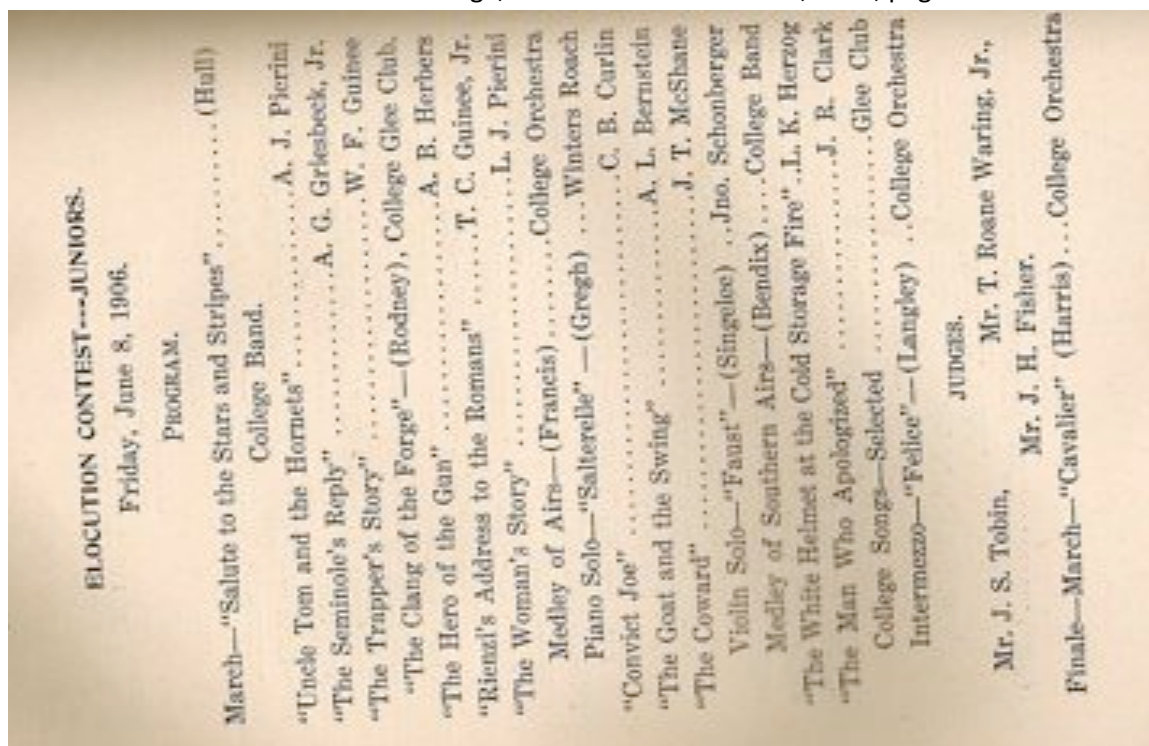 ELOCUTION CONTEST---JUNIORS.
Friday, June 8, 1906.
PROGRAM.
March—"Salute to the Stars and Stripes"..........(Hull)
College Band.
"Uncle Tom and the Hornets"..............A. J. Pierini
"The Seminole's Reply"..............A. G. Griesbeck, Jr.
"The Trapper's Story"....................W. F. Guinee
"The Clang of the Forge"—(Rodney), College Glee Club.
"The Hero of the Gun"....................A. B. Herbers
"Rienzi's Address to the Romans"......T. C. Guinee, Jr.
"The Woman's Story"......................L. J. Pierini
Medley of Airs—(Francis).......College Orchestra
Piano Solo—"Salterelle"—(Gregh)...Winters Roach
"Convict Joe"............................C. B. Curlin
"The Goat and the Swing"...............A. L. Bernstein
"The Coward"............................J. T. McShane
Violin Solo—"Faust"—(Singelee)..Jno. Schonberger
Medley of Southern Airs—(Bendix)....College Band
"The White Helmet at the Cold Storage Fire"..L. K. Herzog
"The Man Who Apologized"..................J. R. Clark
College Songs—Selected..................Glee Club
Intermezzo—"Felice"—(Langley)..College Orchestra
JUDGES.
Mr. J. S. Tobin, Mr. T. Roane Waring, Jr.,
Mr. J. H. Fisher.
Finale—March—"Cavalier" (Harris)...College Orchestra